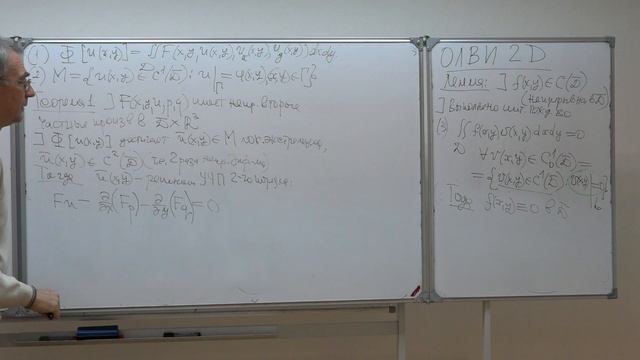 (1) Ф[u(x,y)] = ∬ F(x,y,u(x,y),u'ₓ(x,y),u'ᵧ(x,y)) dxdy
D
2) M = {u(x,y) ∈ C¹(D̄) : u|_Γ = φ(x,y), (x,y) ∈ Γ}
Теорема 1 ] F(x,y,u,p,q) имеет непр. вторые
частные произв в D̄ × R³
] Ф[u(x,y)] достигает ũ(x,y) ∈ M лок. экстремума,
ũ(x,y) ∈ C²(D̄)
Тогда ũ(x,y) – решение УЧП 2-го порядка:
Fu – ∂/∂x (Fp) – ∂/∂y (Fq) = 0
ОЛВИ 2D
Лемма: ] f(x,y) ∈ C(D̄)
(непрерывна в D̄)
] выполнено инт.
(3) ∬ f(x,y) v(x,y) dxdy = 0
D
∀ v(x,y) ∈ C¹₀(D̄) =
= {v(x,y) ∈ C¹(D̄) : v(x,y)|_Γ = 0}
Тогда f(x,y) ≡ 0 в D̄